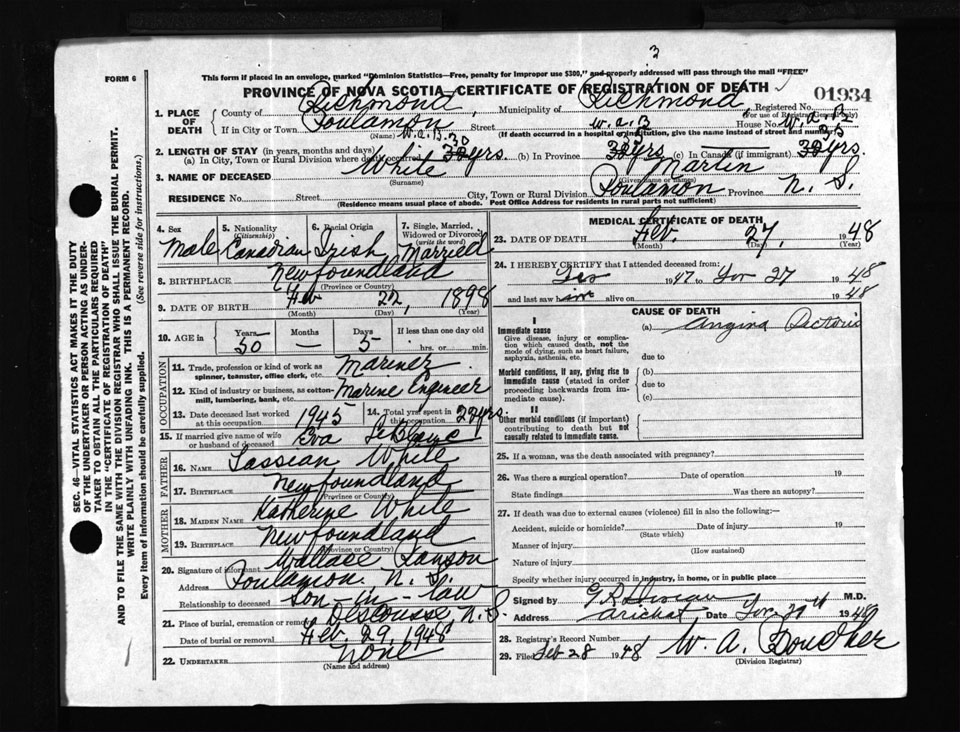 3
FORM 6
This form if placed in an envelope, marked "Dominion Statistics—Free, penalty for improper use $300," and properly addressed will pass through the mail "FREE"
PROVINCE OF NOVA SCOTIA—CERTIFICATE OF REGISTRATION OF DEATH
01934
1. PLACE OF DEATH
County of Richmond, Municipality of Richmond, Registered No.
(For use of Registrar General only)
If in City or Town Poulamon Street W.A.B House No. W.A.B
(Name) W.A.B. (If death occurred in a hospital or institution, give the name instead of street and number)
2. LENGTH OF STAY (in years, months and days)
(a) In City, Town or Rural Division where death occurred 30 yrs. (b) In Province 30 yrs (c) In Canada (if immigrant) 30 yrs
3. NAME OF DECEASED White Martin
(Surname) (Given name or names)
RESIDENCE No. Street City, Town or Rural Division Poulamon Province N. S.
(Residence means usual place of abode. Post Office Address for residents in rural parts not sufficient)
4. Sex Male
5. Nationality (Citizenship) Canadian
6. Racial Origin Irish
7. Single, Married, Widowed or Divorced (write the word) Married
8. BIRTHPLACE Newfoundland
(Province or Country)
9. DATE OF BIRTH Feb 22, 1898
(Month) (Day) (Year)
10. AGE in Years 50 Months — Days 5 If less than one day old
hrs. or min.
OCCUPATION
11. Trade, profession or kind of work as spinner, teamster, office clerk, etc. Mariner
12. Kind of industry or business, as cotton-mill, lumbering, bank, etc. Marine Engineer
13. Date deceased last worked at this occupation 1945
14. Total yrs. spent in this occupation 22 yrs.
15. If married give name of wife or husband of deceased Eva LeBlanc
FATHER
16. NAME White
17. BIRTHPLACE Newfoundland
(Province or Country)
MOTHER
18. MAIDEN NAME Katherine White
19. BIRTHPLACE Newfoundland
(Province or Country)
20. Signature of informant Wallace
Address Poulamon. N. S.
Relationship to deceased Son-in-law
21. Place of burial, cremation or removal Descousse, N. S.
Date of burial or removal Feb. 29, 1948
22. UNDERTAKER None
(Name and address)
MEDICAL CERTIFICATE OF DEATH
23. DATE OF DEATH Feb. 27, 1948
(Month) (Day) (Year)
24. I HEREBY CERTIFY that I attended deceased from:
1947 to 27 1948
and last saw him alive on 1948
CAUSE OF DEATH
I
Immediate cause
Give disease, injury or complication which caused death, not the mode of dying, such as heart failure, asphyxia, asthenia, etc.
(a) Angina Pectoris
due to
Morbid conditions, if any, giving rise to immediate cause (stated in order proceeding backwards from immediate cause).
(b)
due to
(c)
II
Other morbid conditions (if important) contributing to death but not causally related to immediate cause.
25. If a woman, was the death associated with pregnancy?
26. Was there a surgical operation? Date of operation 19
State findings Was there an autopsy?
27. If death was due to external causes (violence) fill in also the following:—
Accident, suicide or homicide? Date of injury 19
(State which)
Manner of injury
(How sustained)
Nature of injury
Specify whether injury occurred in industry, in home, or in public place
Signed by M.D.
Address Arichat Date 1948
28. Registrar's Record Number
29. Filed Feb 28 1948 W. A. Boucher
(Division Registrar)
SEC. 46—VITAL STATISTICS ACT MAKES IT THE DUTY
OF THE UNDERTAKER OR PERSON ACTING AS UNDERTAKER TO OBTAIN ALL THE PARTICULARS REQUIRED
IN THE "CERTIFICATE OF REGISTRATION OF DEATH"
AND TO FILE THE SAME WITH THE DIVISION REGISTRAR WHO SHALL ISSUE THE BURIAL PERMIT.
WRITE PLAINLY WITH UNFADING INK. THIS IS A PERMANENT RECORD.
Every item of information should be carefully supplied. (See reverse side for instructions.)